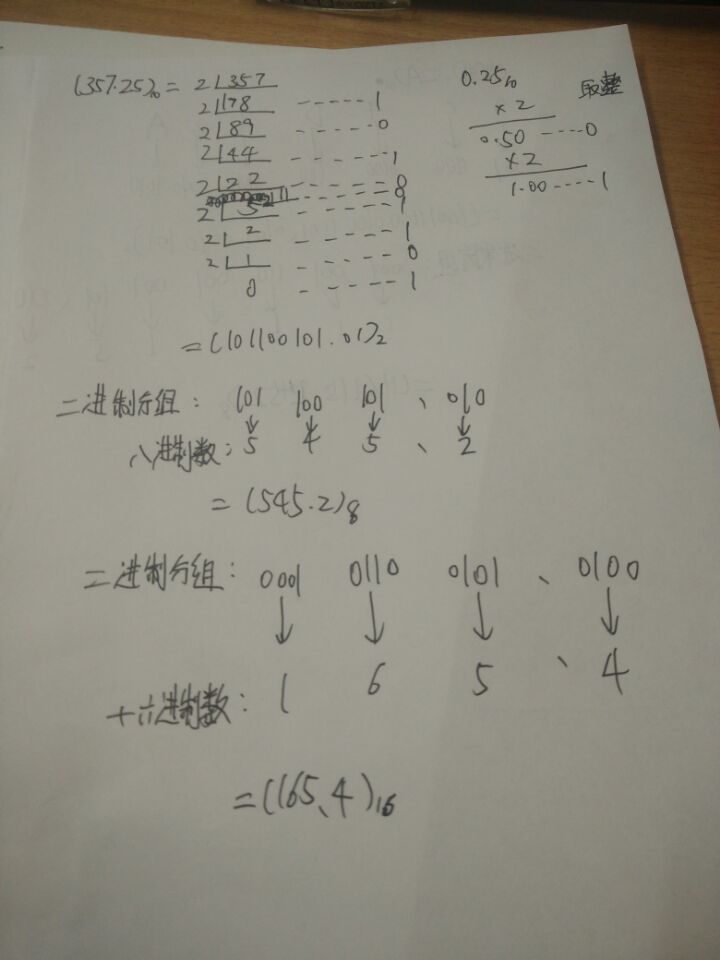 (357.25)₁₀ = 2 357
2 178 ------ 1
2 89 ------ 0
2 44 ------ 1
2 22 ------ 0
11 ------ 0
2 5 ------ 1
2 2 ------ 1
2 1 ------ 0
0 ------ 1
0.25₁₀ 取整
×2
0.50 ----0
×2
1.00 ----1
=(101100101.01)₂
二进制分组: 101 100 101 、 010
↓ ↓ ↓ ↓
八进制数: 5 4 5 、 2
= (545.2)₈
二进制分组: 0001 0110 0101 、 0100
↓ ↓ ↓ ↓
十六进制数: 1 6 5 、 4
=(165、4)₁₆